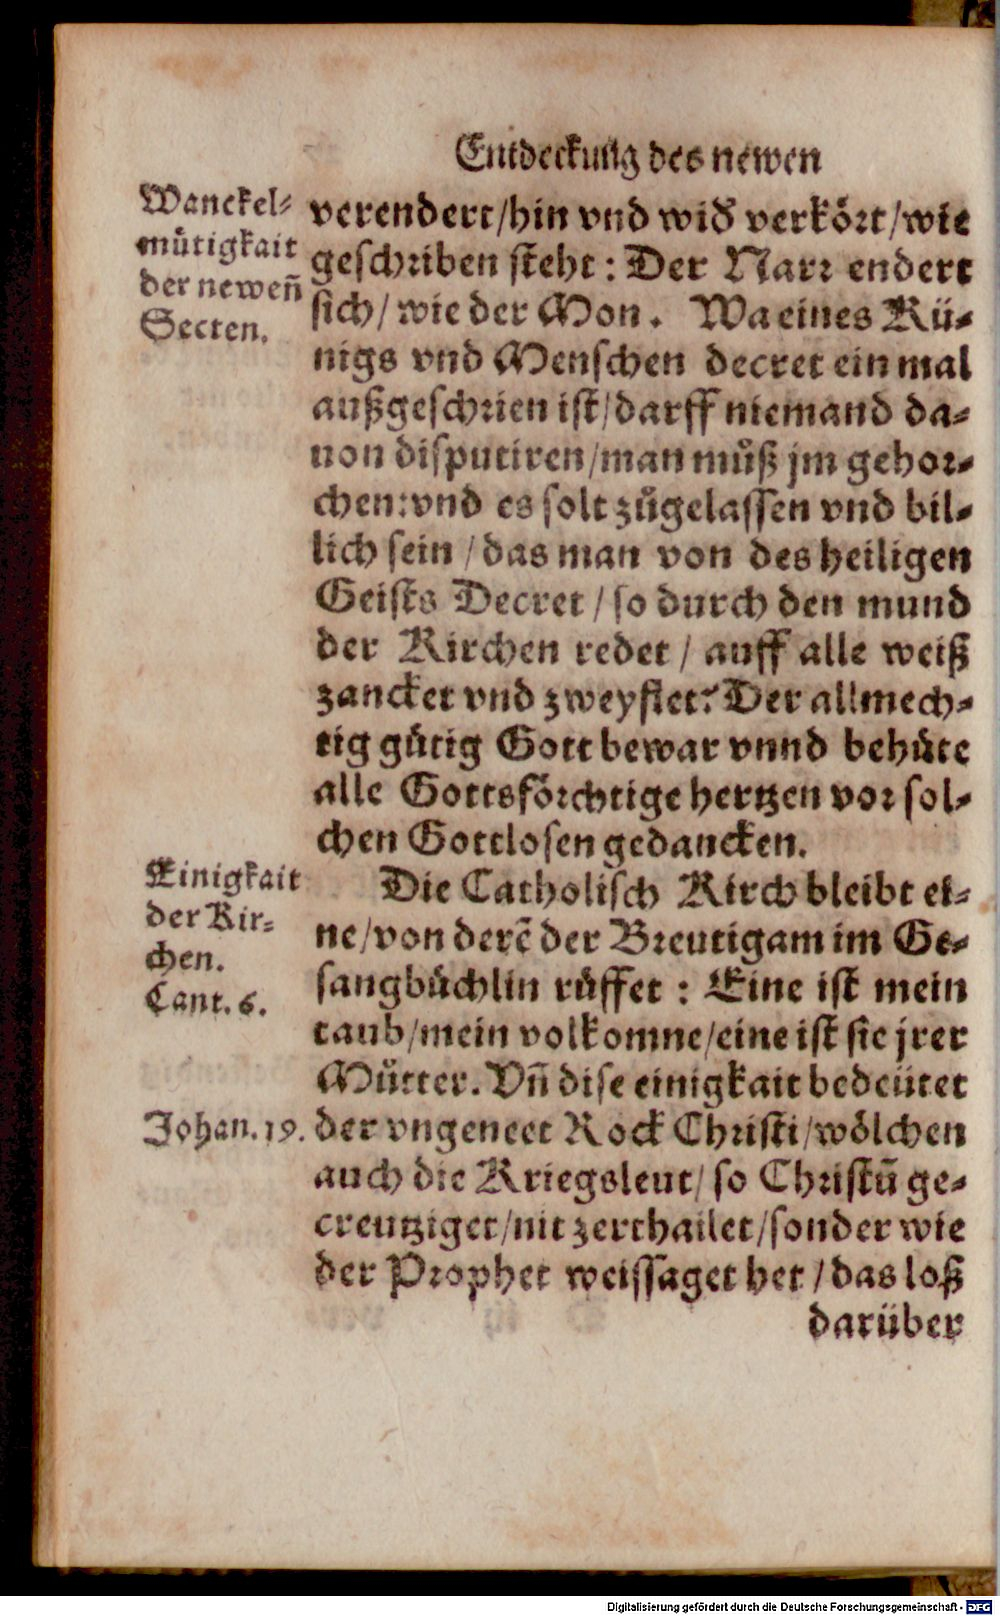 Entdeckung des newen
Wanckel-
mütigkait
der neweñ
Secten.
verendert/hin vnd wid verkört/wie
geschriben steht: Der Narr endert
sich/wie der Mon. Wa eines Kü-
nigs vnd Menschen decret ein mal
außgeschrien ist/darff niemand da-
uon disputiren/man můß jm gehor-
chen: vnd es solt zůgelassen vnd bil-
lich sein/das man von des heiligen
Geists Decret/so durch den mund
der Kirchen redet/auff alle weiß
zancket vnd zweyflet? Der allmech-
tig gütig Gott bewar vnnd behüte
alle Gottsförchtige hertzen vor sol-
chen Gottlosen gedancken.
Einigkait
der Kir-
chen.
Cant. 6.
Die Catholisch Kirch bleibt ei-
ne/von derē der Breutigam im Ge-
sangbüchlin rüffet: Eine ist mein
taub/mein volkomne/eine ist sie jrer
Můtter. Vñ dise einigkait bedeütet
Johan. 19.
der vngeneet Rock Christi/wölchen
auch die Kriegsleut/so Christū ge-
creutziget/nit zerthailet/sonder wie
der Prophet weissaget het/das loß
darüber
Digitalisierung gefördert durch die Deutsche Forschungsgemeinschaft - DFG